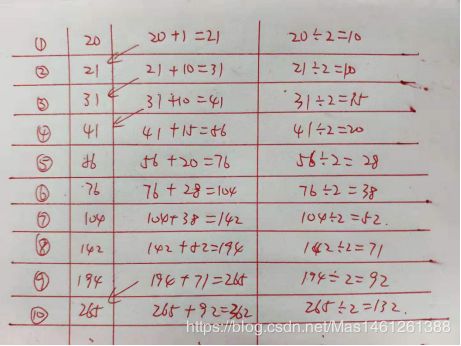 ① 20 20+1=21 20÷2=10
② 21 21+10=31 21÷2=10
③ 31 31+10=41 31÷2=15
④ 41 41+15=56 41÷2=20
⑤ 56 56+20=76 56÷2=28
⑥ 76 76+28=104 76÷2=38
⑦ 104 104+38=142 104÷2=52.
⑧ 142 142+52=194 142÷2=71
⑨ 194 194+71=265 194÷2=92
⑩ 265 265+92=362 265÷2=132.
https://blog.csdn.net/Mas1461261388